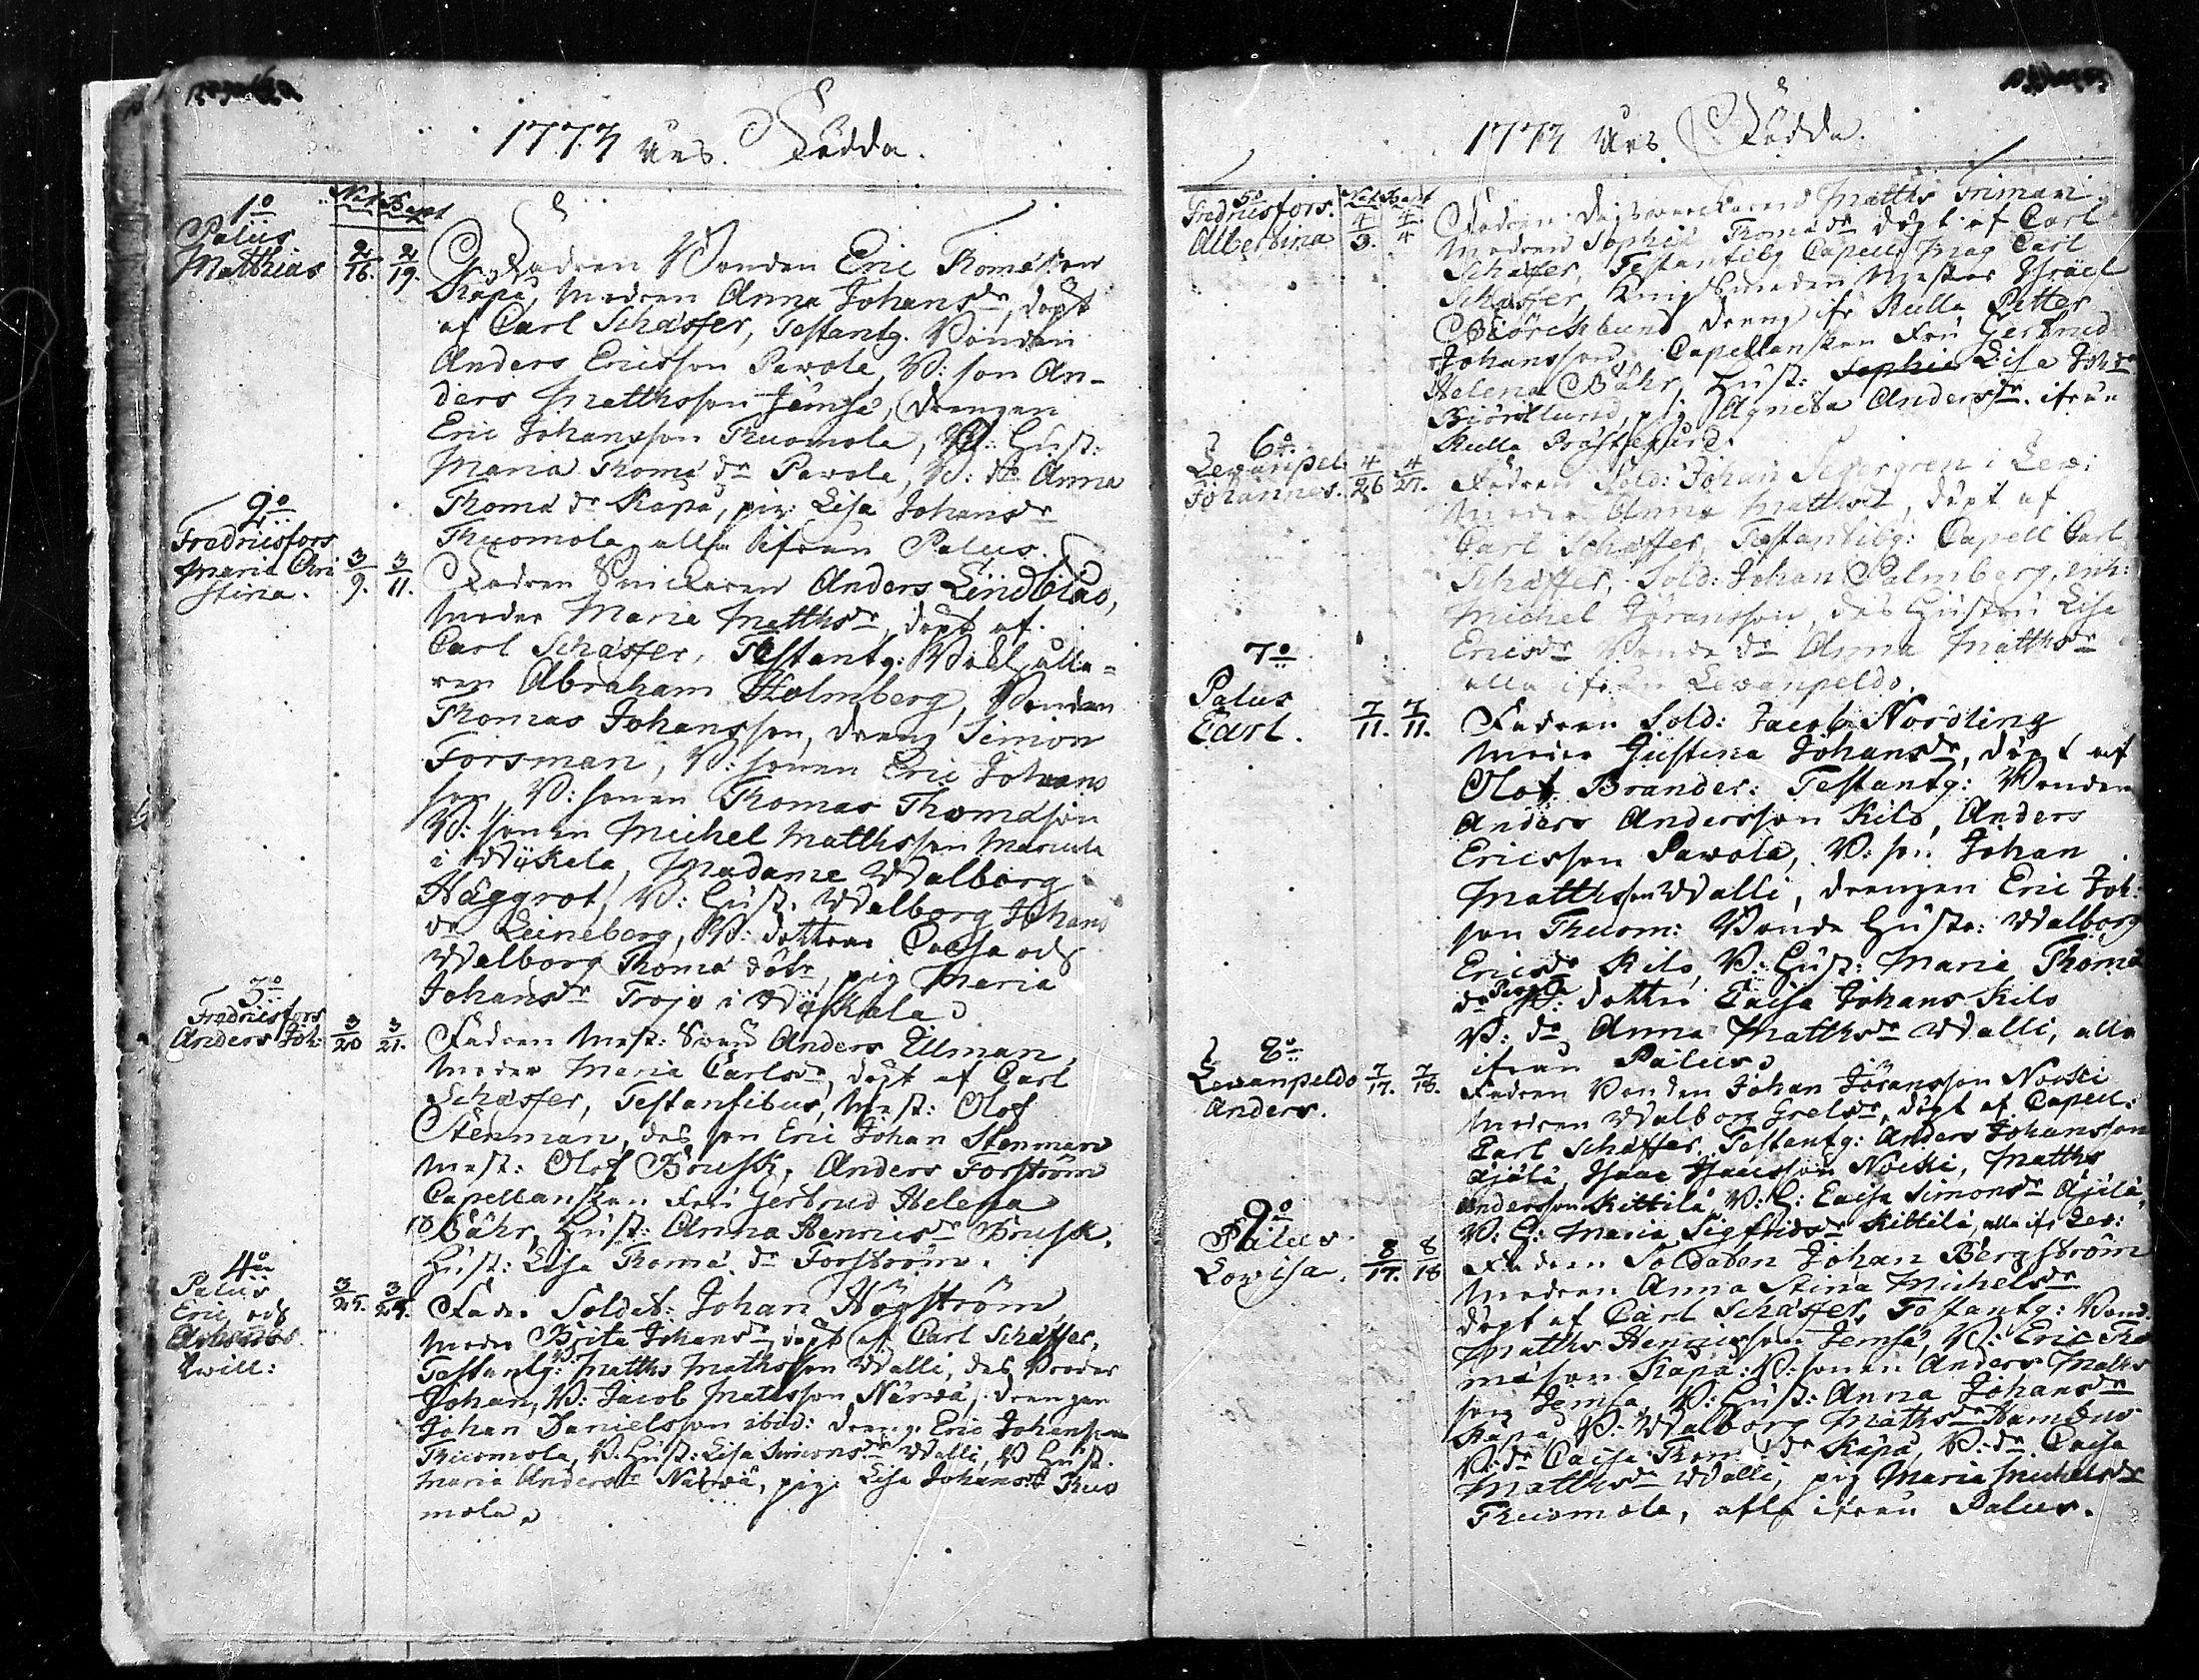 1773 Års Födda.
Nat. Bapt
1o
Palus
Matthias
2/16. 2/19.
Fadren Bonden Eric Thomasson
Kapa, Modren Anna Johansdr, döpt
af Carl Schæffer, Testantg. Bonden
Anders Ericsson Pavola, B: son An-
ders Matthsson Jemsä, Drengen
Eric Johansson Thuomola, B: Hust:
Maria Thomä dr Pavola, B: dr Anna
Thomä dr Kapa, pig: Lisa Johansdr
Thuomola alla ifrån Palus.
2o
Fredricsfors
Maria Chri
stina.
3/9. 3/11.
Fadren Snickaren Anders Lindblad,
Moder Maria Matthsdr, döpt af
Carl Schæffer, Testantg:
ren Abraham Holmberg, Bonden
Thomas Johansson, dreng Simon
Forsman, B: sonen Eric Johans
son, B: sonen Thomas Thomäson
B: sonen Michel Matthsson
i Wäskala, Madame Walborg
Häggrot, B: Hust. Walborg Johans
dr Leineberg, B: dottrar Caisa och
Walborg Thomä dötr, pig Maria
Johansdr Trojo i Wäskala
3o
Fredricsfors
Anders Joh:
3/20 3/21.
Fadren Mest: Sven Anders Ullman,
Moder Maria Carlsdr, döpt af Carl
Schæffer, Testantibus, Mest: Olof
Stenman, des son Eric Johan Stenman
Mest: Olof Brusk, Anders Forström
Capellanskan Fru Gertrud Helena
Bähr, Hust: Anna Henricsdr Brusk,
Hust: Lisa Thomä dr Forström.
4o
Palus
Eric och
Twill:
3/25. 3/25.
Fader Soldat: Johan Högström
Moder Brita Johansdr, döpt af Carl Schæffer,
Testantg: B: Matths Mathsson Walli, des Broder
Johan, B: Jacob Matsson Närvä, drengen
Johan Danielsson ibid: dreng Eric Johansson
Thuomola, B: Hust: Lisa Simonsdr Walli, B Hust.
Maria Andersdr Närvä, pig: Lisa Johansdr Thuo
mola.
1773 Års Födda.
5o
Fredricsfors.
Albertina
Nat Bapt
4/3. 4/4
Fadren Matths Friman
Modren Sophia Thomä dr döpt af Carl
Schæffer, Testantibg Capell: Mag Carl
Schæffer, Knip Smeden Mester Israel
Björcklund dreng ifr Kulla Petter
Johansson, Capellanskan Fru Gertrud
Helena Bähr, Hust: Sophia Lisa Johdr
Björklund, pig Agneta Andersdr ifrån
Kulla Prästegård.
6o
Levanpel:
Johannes.
4/26 4/27.
Fadren Sold: Johan Segergren i Lev:
Moder Anna Matthsd, döpt af
Carl Schæffer, Testantibg: Capell Carl
Schæffer, Sold: Johan Palmberg, enk:
Michel Jöransson, des Hustru Lisa
Ericsdr Bonde dr Anna Matthsdr
alla ifrån Levanpeldo.
7o
Palus
Carl.
7/11. 7/11.
Fadren Sold: Jacob Nordling
Moder Justina Johansdr, döpt af
Olof Brander: Testantg: Bonden
Anders Andersson Kils, Anders
Ericsson Pavola, B: son Johan
Matthsson Walli, drengen Eric Joh:
son Thuom: Bonde Hustr: Walborg
Ericsdr Kils, B: Hust: Maria Thomä
dr Pavola B: dottr: Caisa Johans Kils
B: dr Anna Matthsdr Walli, alla
ifrån Palus
8o
Levanpeldo
Anders.
7/17. 7/18.
Fadren Bonden Johan Jöransson Nocki
Modren Walborg Grelsdr, döpt af Capell:
Carl Schæffer, Testantg: Anders Johansson
Äjälä, Isaac Isacsson Nocki, Matths
Andersson Kittilä, B: H: Caisa Simonsdr Äjälä,
B: H: Maria Sigfridsdr Kittilä, alla ifr Lev:
9o
Palus
Lovisa.
8/17. 8/18
Fadren Soldaten Johan Bergström
Modren Anna Stina Michelsdr
döpt af Carl Schæffer, Testantg: Bond.
Matths Henricsson Jemsä, B: Eric Tho
mäson Kapa: B: sonen Anders Maths
son Jemsä, B: Hust: Anna Johansdr
Kapa, B: Walborg Mathsdr
B: dr Caisa Thom dr Kapa, B: dr Caisa
Matthsdr Walli, pig Maria Michelsdr
Thuomola, alla ifrån Palus.